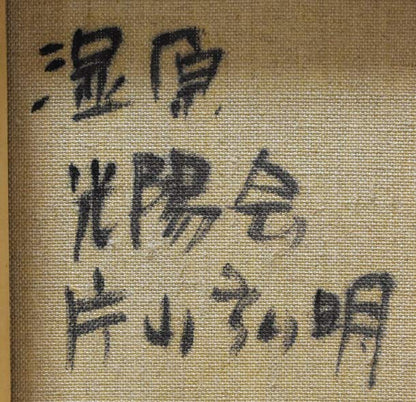 湿原
光陽会
片山弘明